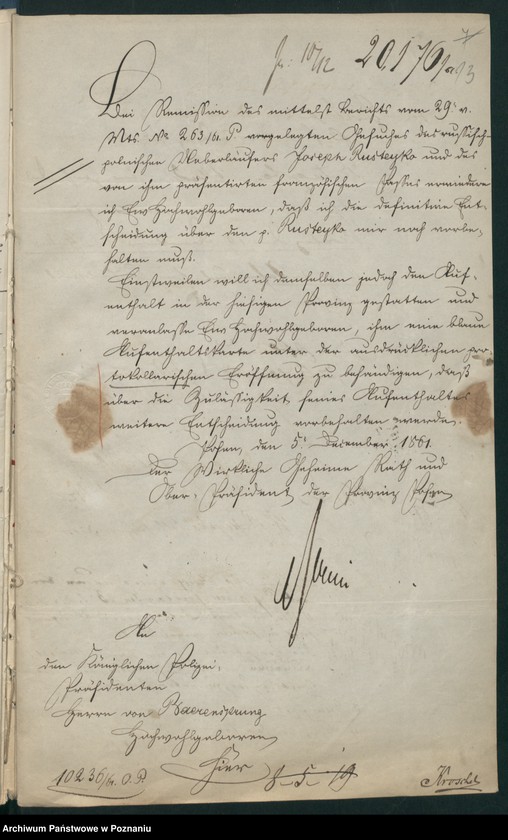 pr: 10/12 20176/61
Bei Remission des mittelst Berichts vom 29t v.
Mts. No 263/61. P vorgelegten Gesuches des russisch-
polnischen Ueberläufers Joseph Rusteyko und des
von ihm präsentirten französischen Passes erwiedere
ich Ew Hochwohlgeboren, daß ich die definitive Ent-
scheidung über den p. Rusteyko mir noch vorbe-
halten muß.
Einstweilen will ich demselben jedoch den Auf-
enthalt in der hiesigen Provinz gestatten und
veranlasse Ew Hochwohlgeboren, ihm eine blaue
Aufenthaltskarte unter der ausdrücklichen pro-
tokollarischen Eröffnung zu behändigen, daß
über die Zulässigkeit seines Aufenthaltes
weitere Entscheidung vorbehalten werde.
Posen, den 5t December 1861.
Der Wirkliche Geheime Rath und
Ober-Präsident der Provinz Posen
An
den Königlichen Polizei-
Präsidenten
Herrn von Baerensprung
Hochwohlgeboren
Hier
10236/61. O.P.
Archiwum Państwowe w Poznaniu